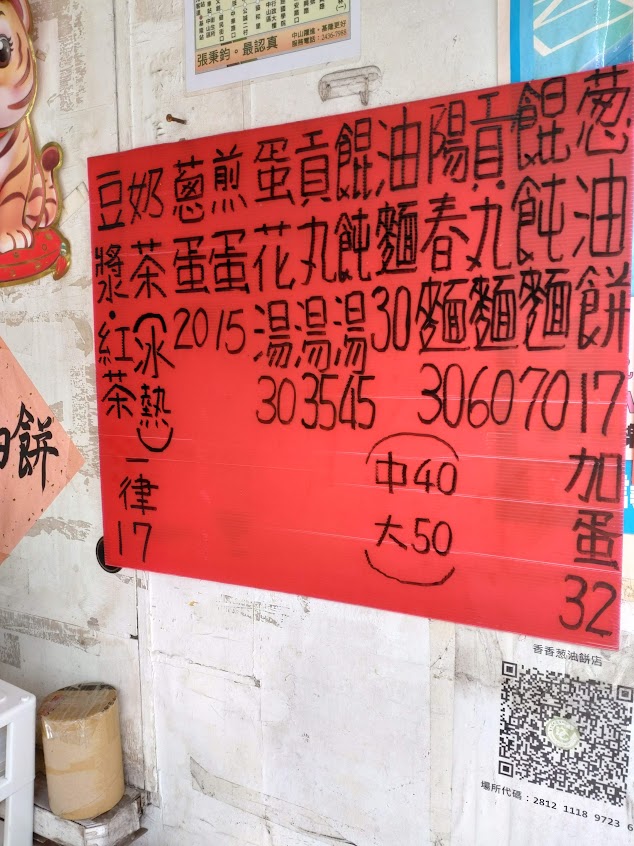 張秉鈞。最認真
葱油餅17加蛋32
餛飩麵70
貢丸麵60
陽春麵30
油麵30
(中40
大50)
餛飩湯45
貢丸湯35
蛋花湯30
煎蛋15
蔥蛋20
奶茶(冰熱)一律17
豆漿·紅茶
餅
香香葱油餅店
場所代碼:2812 1118 9723 6